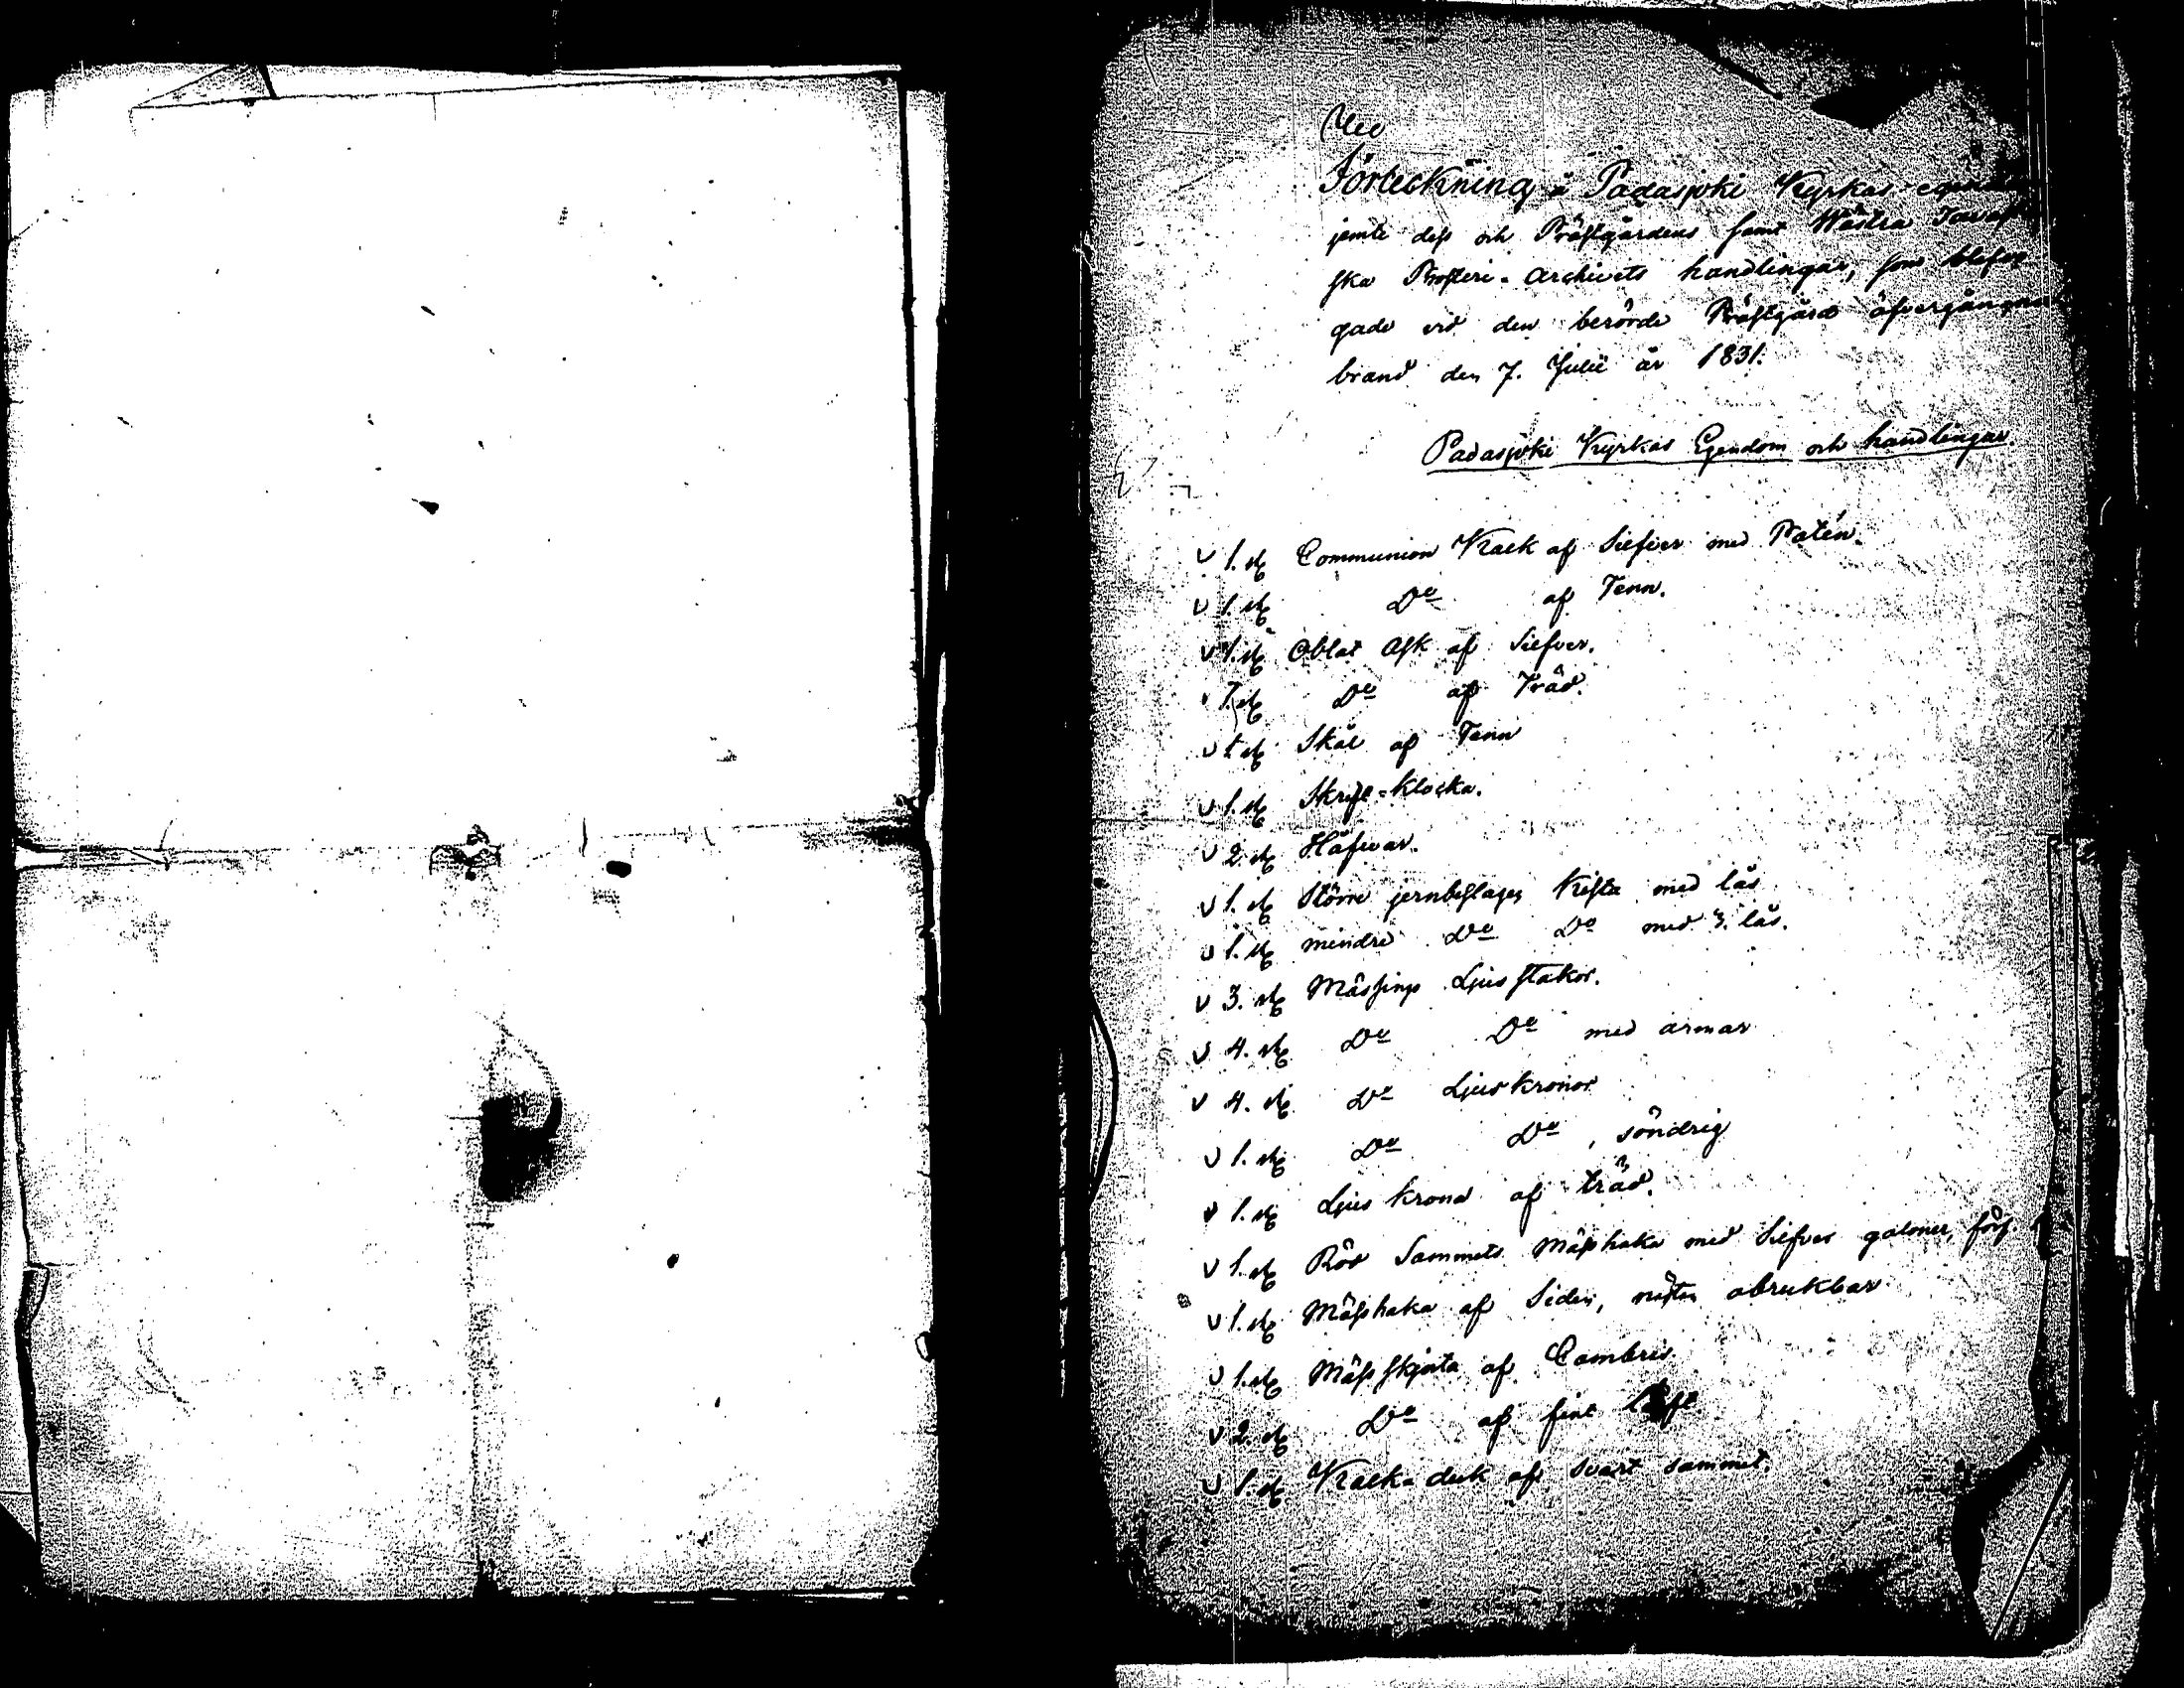 Förteckning å Padasjoki Kyrkas
jemte dess och Prästgårdens samt Wästra
ska Prosteri-Archivets handlingar, som
gade vid den berörde Prästgård öfvergångna
brand den 7. Julii år 1831.
Padasjoki Kyrkas Egendom och handlingar
1. st. Communion Kalk af Silfver med Patén.
1. st. Do af Tenn.
1. st. Oblat Ask af Silfver.
1. st. Do af Träd.
1 st. Skål af Tenn
1. st. Skrift-Klocka.
2. st. Håfvar.
1. st. Större jernbeslagen Kista med lås
1. st. mindre Do Do med 3. lås.
3. st. Mässings Ljusstakor.
4. st. Do Do med armar
4. st. Do Ljuskronor
1. st. Do Do, söndrig
1. st. Ljus krona af träd.
1. st. Röd Sammets Mässhaka med Silfver galoner,
1. st. Mässhaka af Siden, nästan obrukbar
1. st. Mässskjorta af Cambric.
2. st. Do af fint
1. st. Kalk-duk af svart sammet.